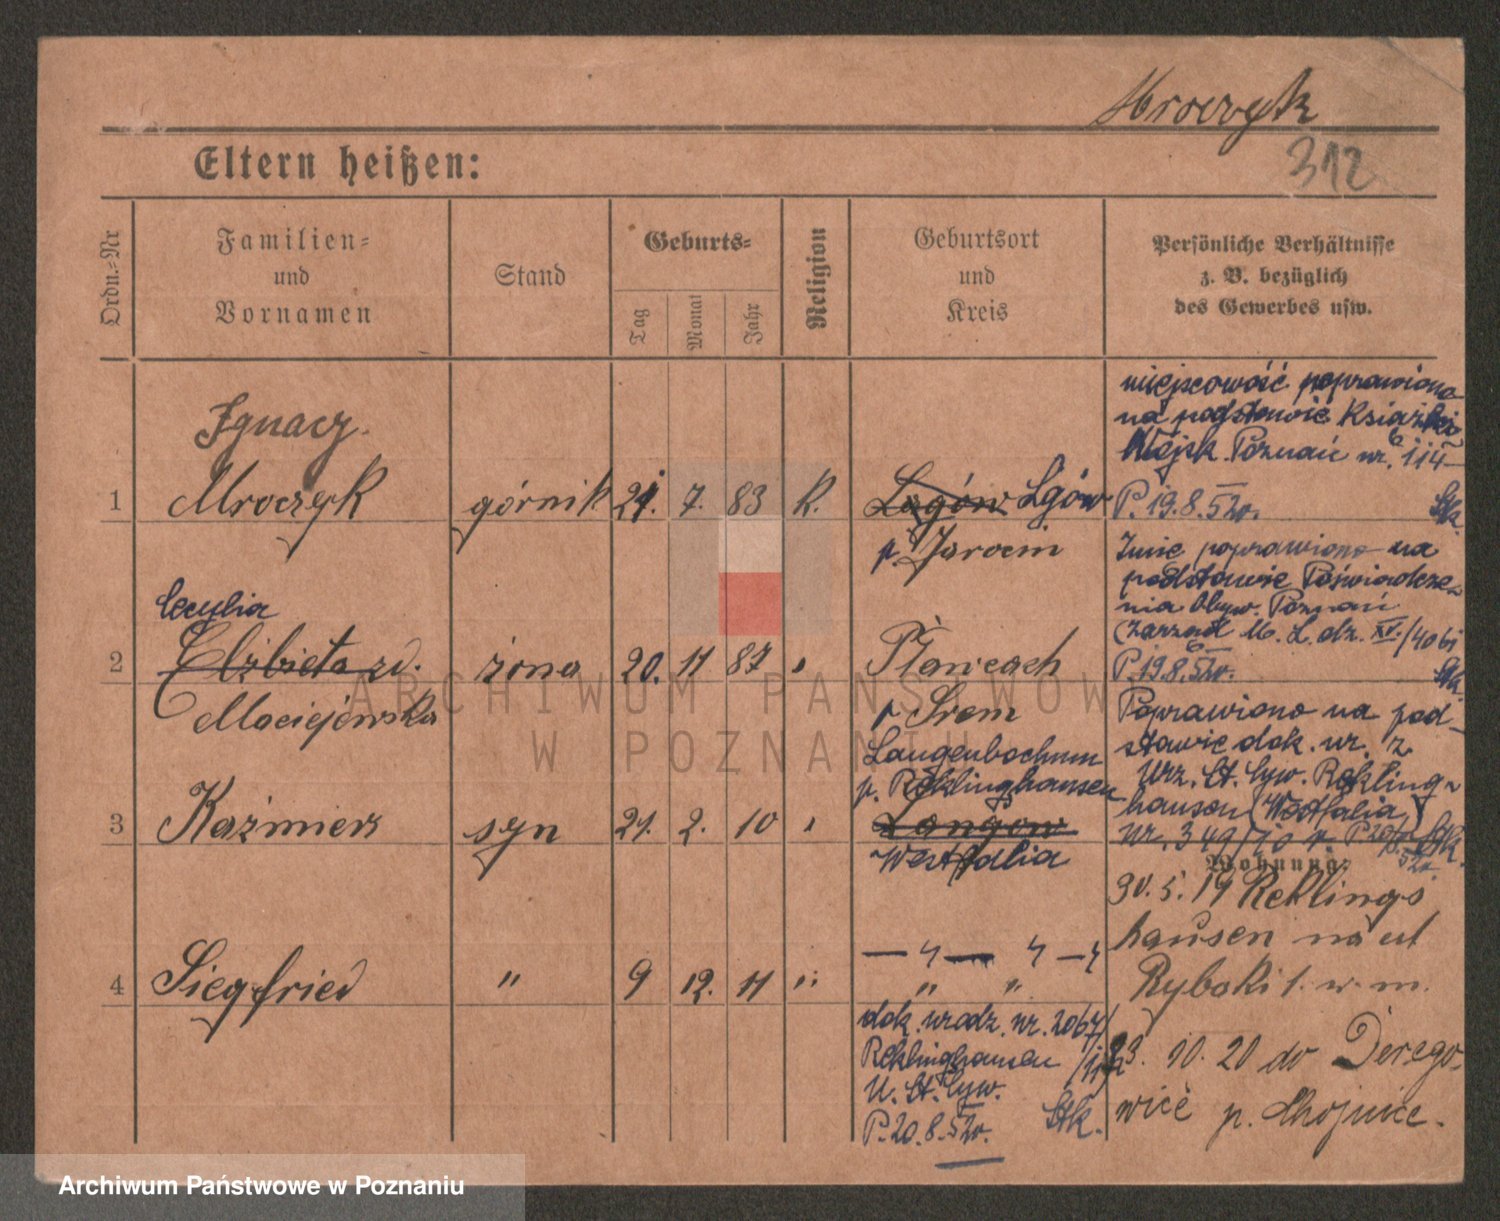 Mroczyk
312
Eltern heißen:
Ordn.-Nr
Familien-
und
Vornamen
Stand
Geburts-
Tag
Monat
Jahr
Religion
Geburtsort
und
Kreis
Persönliche Verhältnisse
z. B. bezüglich
des Gewerbes usw.
Ignacy
1 Mroczyk górnik 21. 7. 83 K. Łagów Lgów
p. Jarocin
miejscowość poprawiona
na podstawie Książki
Wojsk. Poznań nr. 114
P. 19.8.52r. Stk.
Cecylia
2 Elżbieta zd. żona 20. 11 87 "
Maciejewska
r Śrem
Imię poprawiono na
podstawie Poświadcze-
nia Obyw. Poznań
Zarząd M. L. dz. XV./4061
P. 19.8.52r. Stk.
Langenbochum
p. Reklinghausen
3 Kaźmierz syn 21. 2. 10 " Langow
Westfalia
Poprawiono na pod-
stawie dok. ur. z
Urz. St. Cyw. Rekling-
hausen (Westfalia)
Nr. 349/10 Stk.
Wohnung:
30. 5. 19 Reklings
hausen na ul
Rybaki 1. w. m.
4 Siegfried " 9 12. 11 " " "
dok. urodz. nr. 2067/
Reklinghausen /11
U. St. Cyw.
P. 20.8.52r. Stk.
23. 10. 20 do Derego-
wice p. Chojnice.
ARCHIWUM PAŃSTWOWE
W POZNANIU
Archiwum Państwowe w Poznaniu